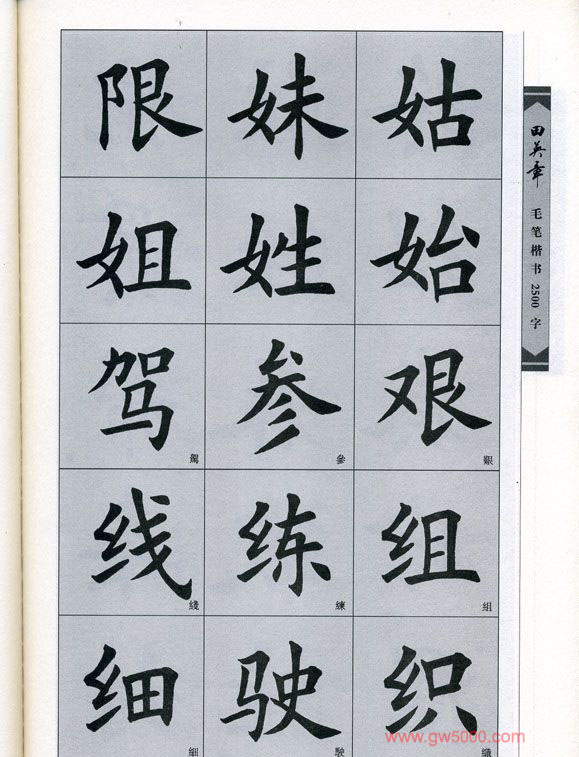 限 妹 姑
姐 姓 始
驾 参 艰
駕 參 艱
线 练 组
綫 練 組
细 驶 织
細 駛 織
田英章
毛笔楷书2500字
www.gw5000.com